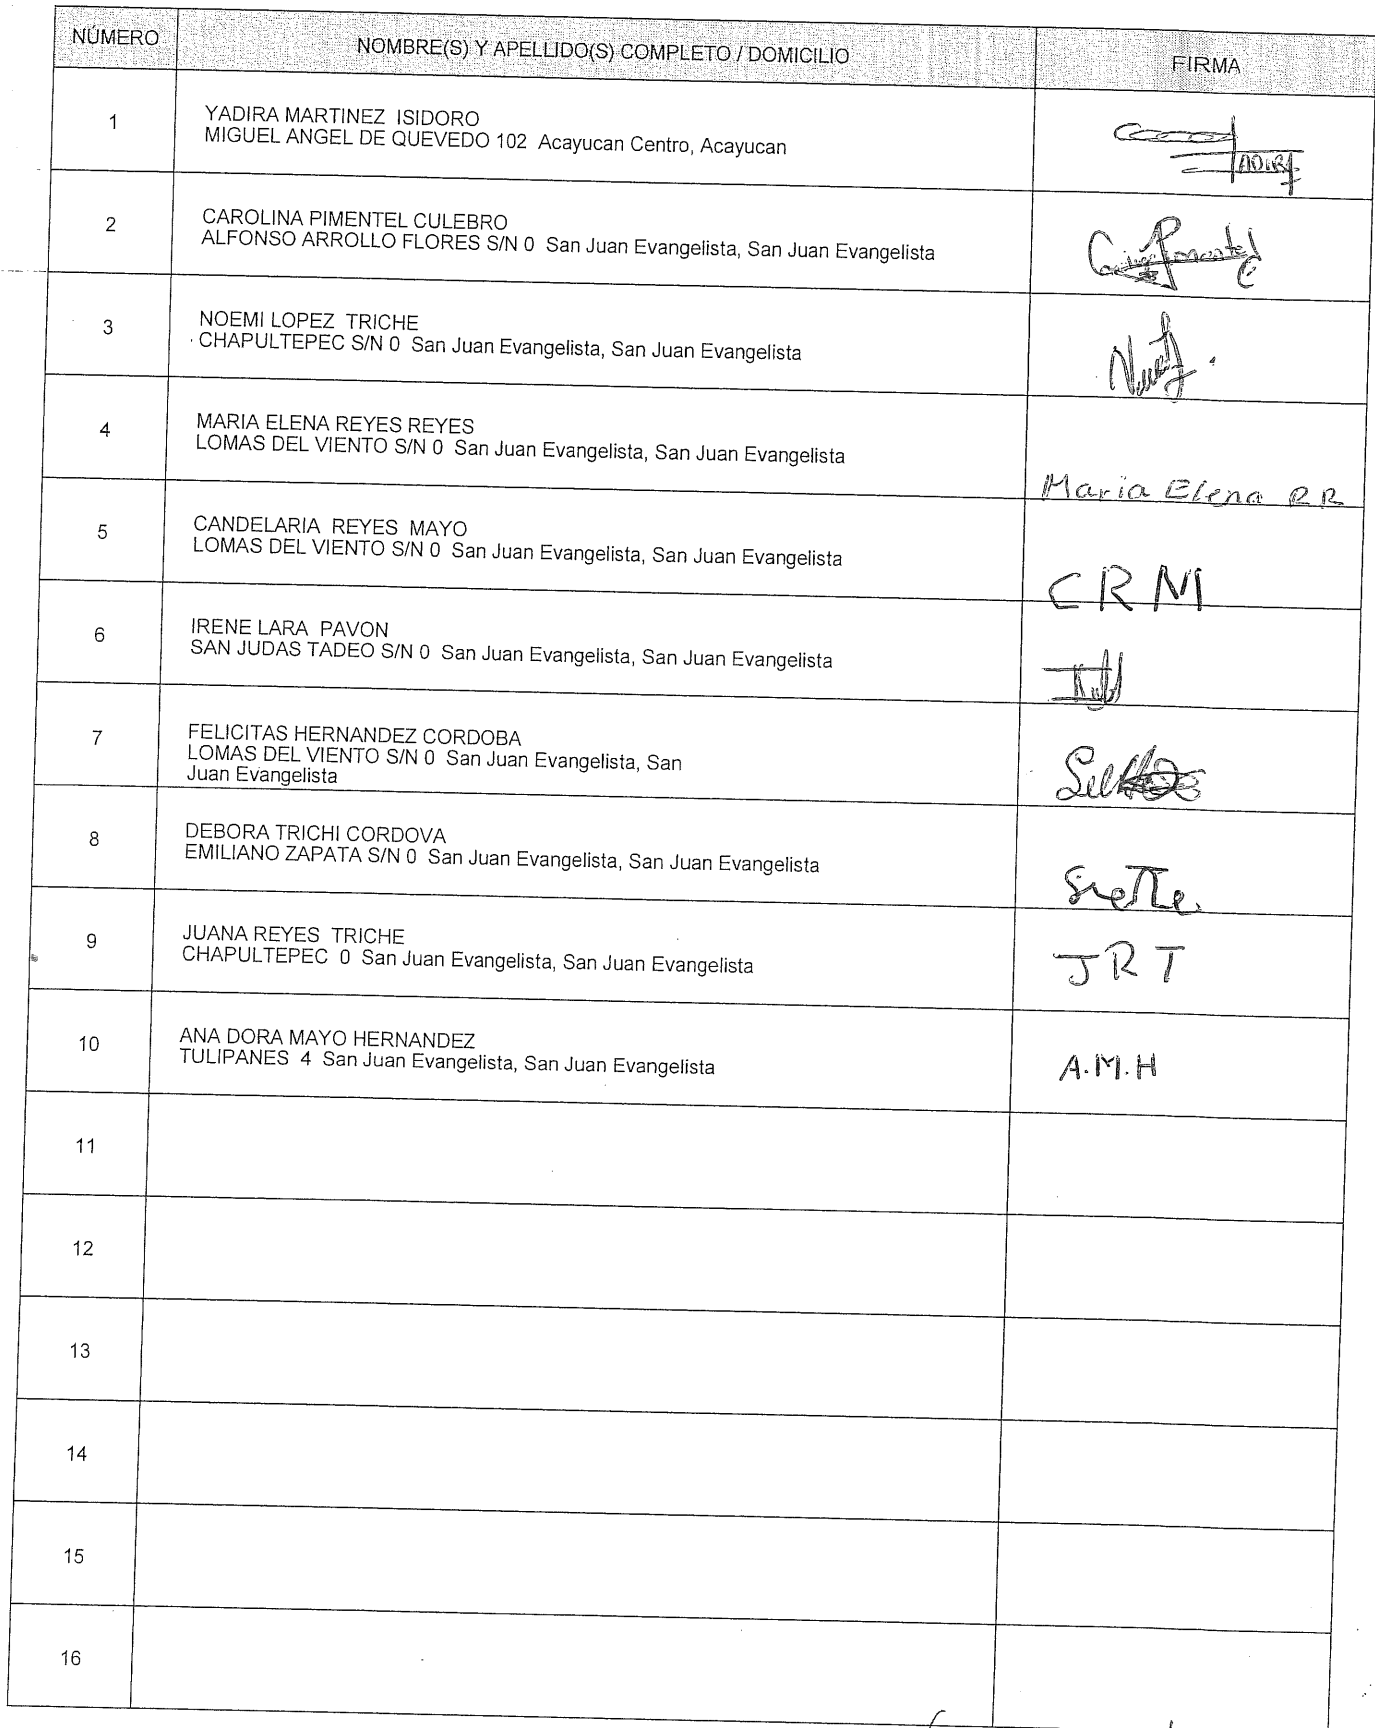 NÚMERO NOMBRE(S) Y APELLIDO(S) COMPLETO / DOMICILIO FIRMA
1 YADIRA MARTINEZ ISIDORO
MIGUEL ANGEL DE QUEVEDO 102 Acayucan Centro, Acayucan
2 CAROLINA PIMENTEL CULEBRO
ALFONSO ARROLLO FLORES S/N 0 San Juan Evangelista, San Juan Evangelista
3 NOEMI LOPEZ TRICHE
CHAPULTEPEC S/N 0 San Juan Evangelista, San Juan Evangelista
4 MARIA ELENA REYES REYES
LOMAS DEL VIENTO S/N 0 San Juan Evangelista, San Juan Evangelista
Maria Elena R R
5 CANDELARIA REYES MAYO
LOMAS DEL VIENTO S/N 0 San Juan Evangelista, San Juan Evangelista
C R M
6 IRENE LARA PAVON
SAN JUDAS TADEO S/N 0 San Juan Evangelista, San Juan Evangelista
7 FELICITAS HERNANDEZ CORDOBA
LOMAS DEL VIENTO S/N 0 San Juan Evangelista, San
Juan Evangelista
8 DEBORA TRICHI CORDOVA
EMILIANO ZAPATA S/N 0 San Juan Evangelista, San Juan Evangelista
9 JUANA REYES TRICHE
CHAPULTEPEC 0 San Juan Evangelista, San Juan Evangelista
J R T
10 ANA DORA MAYO HERNANDEZ
TULIPANES 4 San Juan Evangelista, San Juan Evangelista
A.M.H
11
12
13
14
15
16